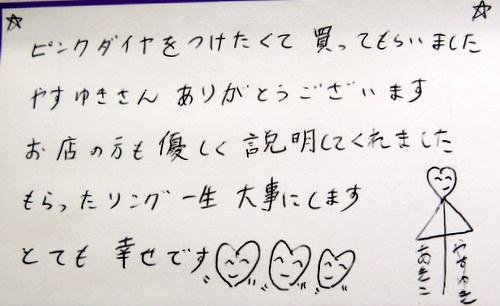 ピンクダイヤをつけたくて 買ってもらいました
やすゆきさん ありがとうございます
お店の方も 優しく 説明してくれました
もらったリング 一生 大事にします
とても 幸せです
やすゆき
あきこ